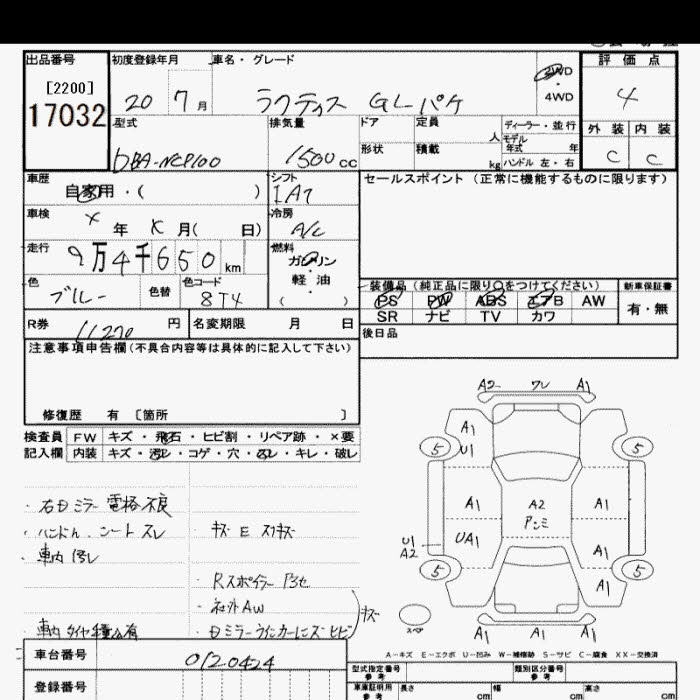 出品番号 初度登録年月 車名・グレード 評価点
[2200]
17032
20 7月 ラクティス GLパケ 2WD・4WD 4
型式 排気量 ドア 定員 人 ディーラー・並行 外装 内装
モデル年式 年
DBA-NCP100 1500cc 形状 積載 kg ハンドル 左・右 C C
車歴 自家用・( ) シフト IAT セールスポイント (正常に機能するものに限ります)
車検 × 年 × 月( 日) 冷房 A/C
走行 9万4千650km 燃料 ガソリン・軽油 ( )
色 ブルー 色替 色コード 8T4
装備品 (純正品に限り○をつけてください) 新車保証書
PS PW ABS エアB AW 有・無
SR ナビ TV カワ
R券 11270円 名変期限 月 日 後日品
注意事項申告欄 (不具合内容等は具体的に記入して下さい)
修復歴 有 〔箇所 〕
検査員 FW キズ・飛石・ヒビ割・リペア跡・×要
記入欄 内装 キズ・汚レ・コゲ・穴・スレ・キレ・破レ
・右Dミラー電格不良
・ハンドル、シートスレ ・キズ E スリキズ
・車内汚レ
・Rスポイラー
・社外AW
・Dミラーウインカーレンズヒビ キズ
A2 ワレ A1
A1 U1 5 5
A1 A2 A1
UA1 アンミ A1
U1 A2
5 5 A1
スペア A1 A1 A1
A-キズ E-エクボ U-凹み W-補修跡 S-サビ C-腐食 XX-交換済
車台番号 0120424
登録番号
型式指定番号 類別区分番号
参考
車庫証明用 参考 長さ cm 幅 cm 高さ cm